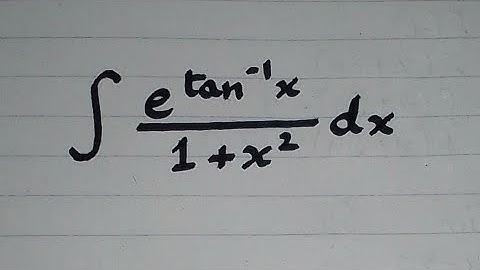 ∫ e^(tan⁻¹x) / (1 + x²) dx